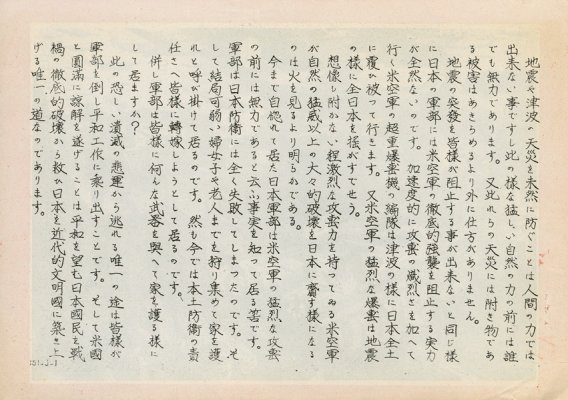 地震や津波の天災を未然に防ぐことは人間の力では
出来ない事ですし此の様な猛しい自然の力の前には誰
でも無力であります。又此れらの天災には附き物であ
る被害はあきらめるより外に仕方がありません。
地震の突発を皆様が阻止する事が出来ないと同じ様
に日本の軍部には米空軍の徹底的強襲を阻止する実力
が全然ないのです。加速度的に攻撃の熾烈さを加へて
行く米空軍の超重爆撃機の編隊は津波の様に日本全土
に覆ひ被って行きます。又米空軍の猛烈な爆撃は地震
の様に全日本を揺がすでせう。
想像し附かない程激烈な攻撃力を持ってゐる米空軍
が自然の猛威以上の大々的破壊を日本に齎す様になる
のは火を見るより明らかである。
今まで自惚れて居た日本軍部は米空軍の猛烈な攻撃
の前には無力であると云ふ事実を知って居る筈です。
軍部は日本防衛には全く失敗してしまったのです。そ
して結局可弱い婦女子や老人までを狩り集めて家を護
れと呼び掛けて居るのです。然も今では本土防衛の責
任さへ皆様に轉嫁しようとして居るのです。
併し軍部は皆様に何んな武器を與へて家を護る様に
して居ますか？
此の恐しい潰滅の悲運から逃れる唯一の途は皆様が
軍部を倒し平和工作に乗り出すことです。そして米國
と圓満に諒解を遂げることは平和を望む日本國民を戦
禍の徹底的破壊から救ひ日本を近代的文明國に築き上
げる唯一の道なのであります。
151-J-1